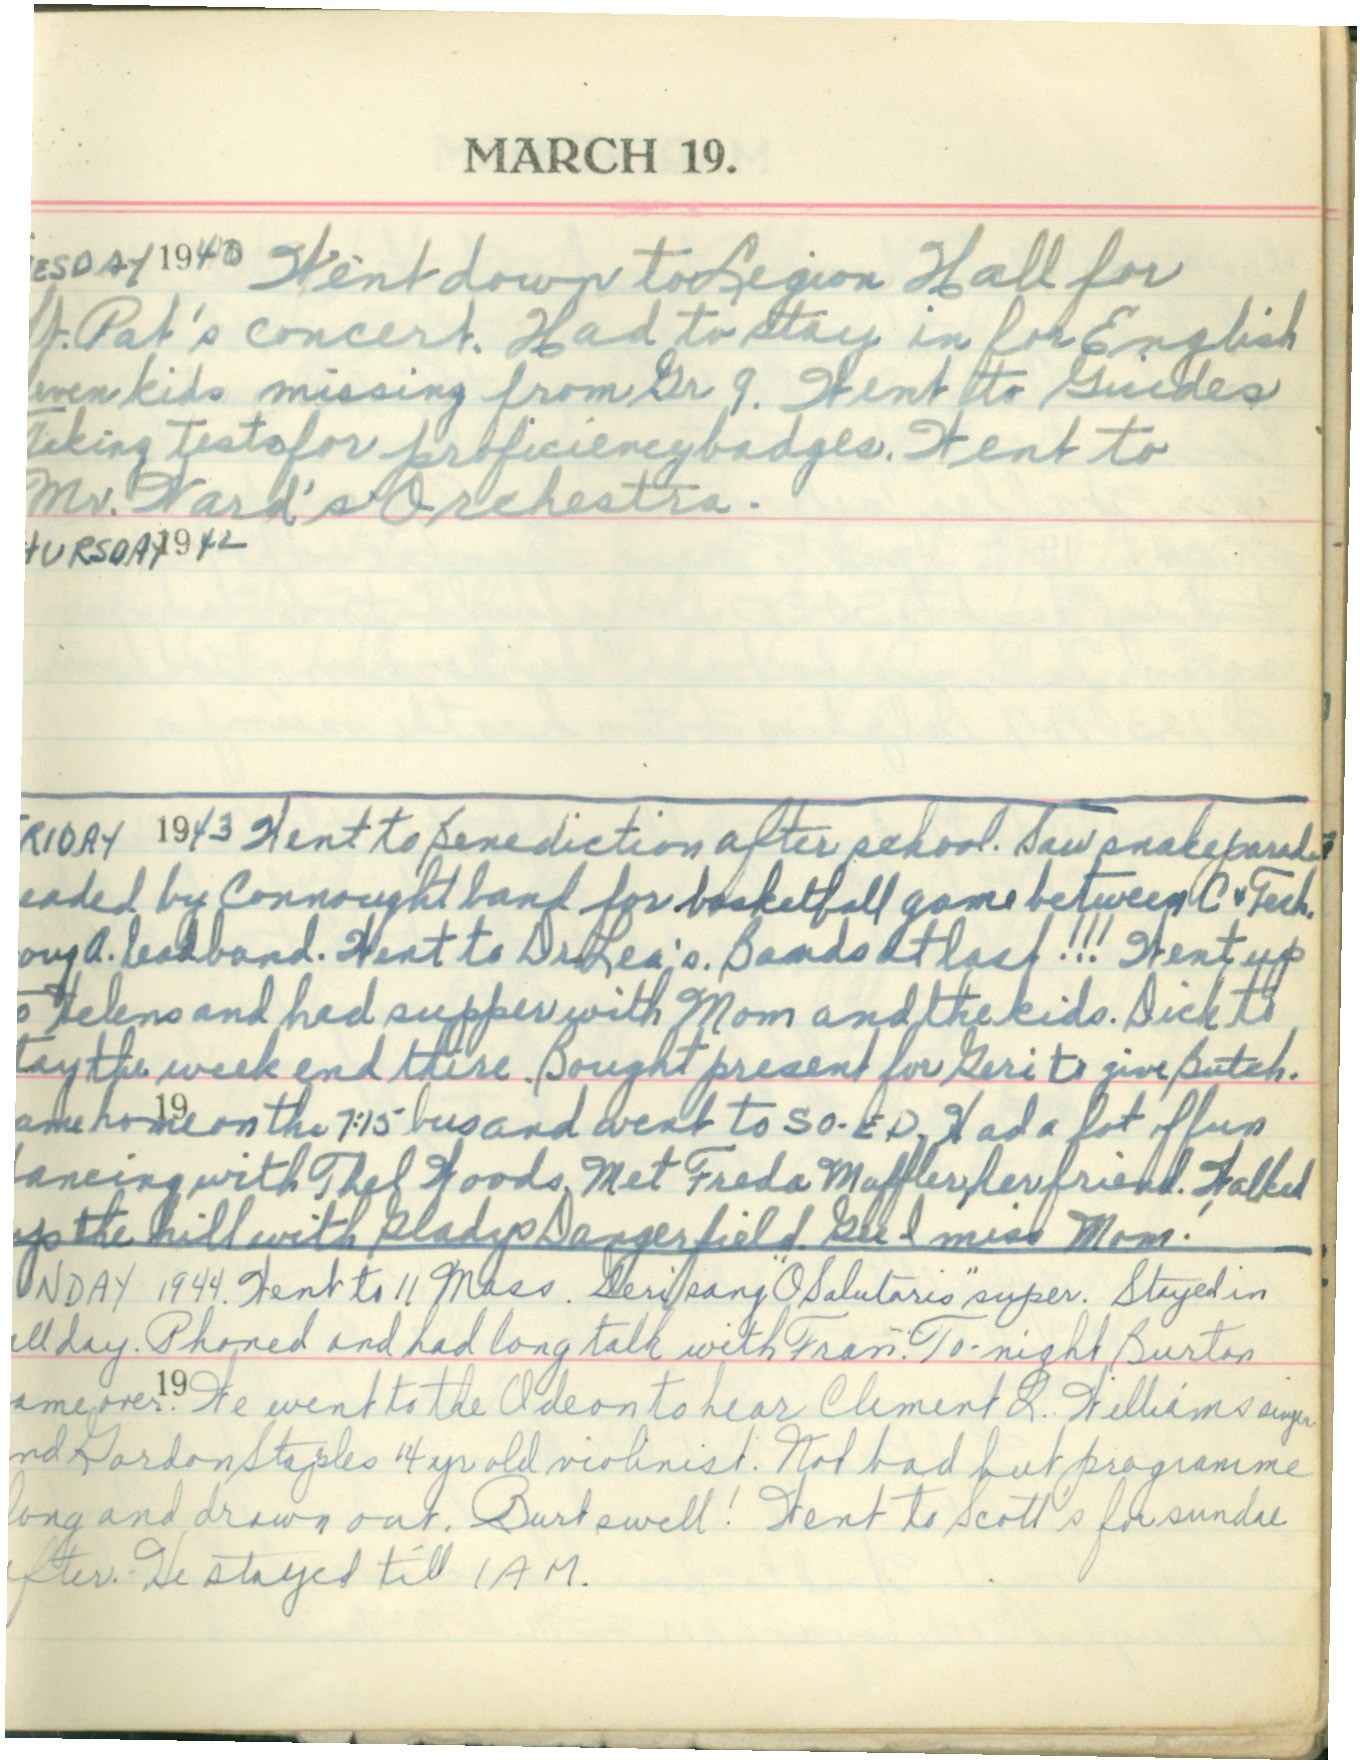 MARCH 19.
ESDAY 1940 Went down to Legion Hall for
St. Pat's concert. Had to stay in for English
even kids missing from Gr 9. Went to Guides
Taking tests for proficiency badges. Went to
Mr. Ward's Orchestra.
HURSDAY 1942
RIDAY 1943 Went to Benediction after school. Saw snake parade
eaded by Connought band for basketball game between C & Tech.
oug A. lead band. Went to Dr Lea's. Bands at last!!! Went up
o Helens and had supper with Mom and the kids. Dick to
tay the week end there. Bought present for Geri to give Butch.
19
ame home on the 7:15 bus and went to SO-ED. Had a lot of fun
ancing with Thel Woods. Met Freda Muffler, her friend. Walked
up the hill with Gladys Dangerfield. Gee I miss Mom!
UNDAY 1944. Went to 11 Mass. Geri sang "O Salutaris" super. Stayed in
all day. Phoned and had long talk with Fran. To-night Burton
19
ame over. We went to the Odeon to hear Clement Q. Williams singer
nd Gordon Staples 14 yr old violinist. Not bad but programme
long and drawn out. Burt swell! Went to Scott's for sundae
after. He stayed till 1 AM.